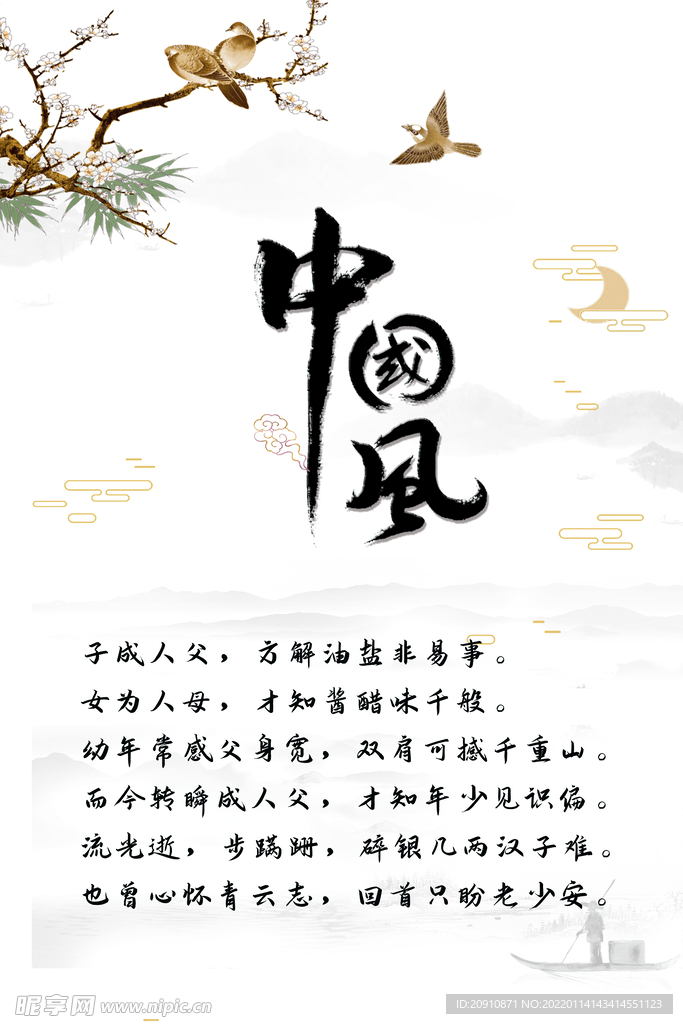 中國風
子成人父，方解油盐非易事。
女为人母，才知酱醋味千般。
幼年常感父身宽，双肩可撼千重山。
而今转瞬成人父，才知年少见识偏。
流光逝，步蹒跚，碎银几两汉子难。
也曾心怀青云志，回首只盼老少安。
昵享网 www.nipic.cn
ID:20910871 NO:20220114143414551123